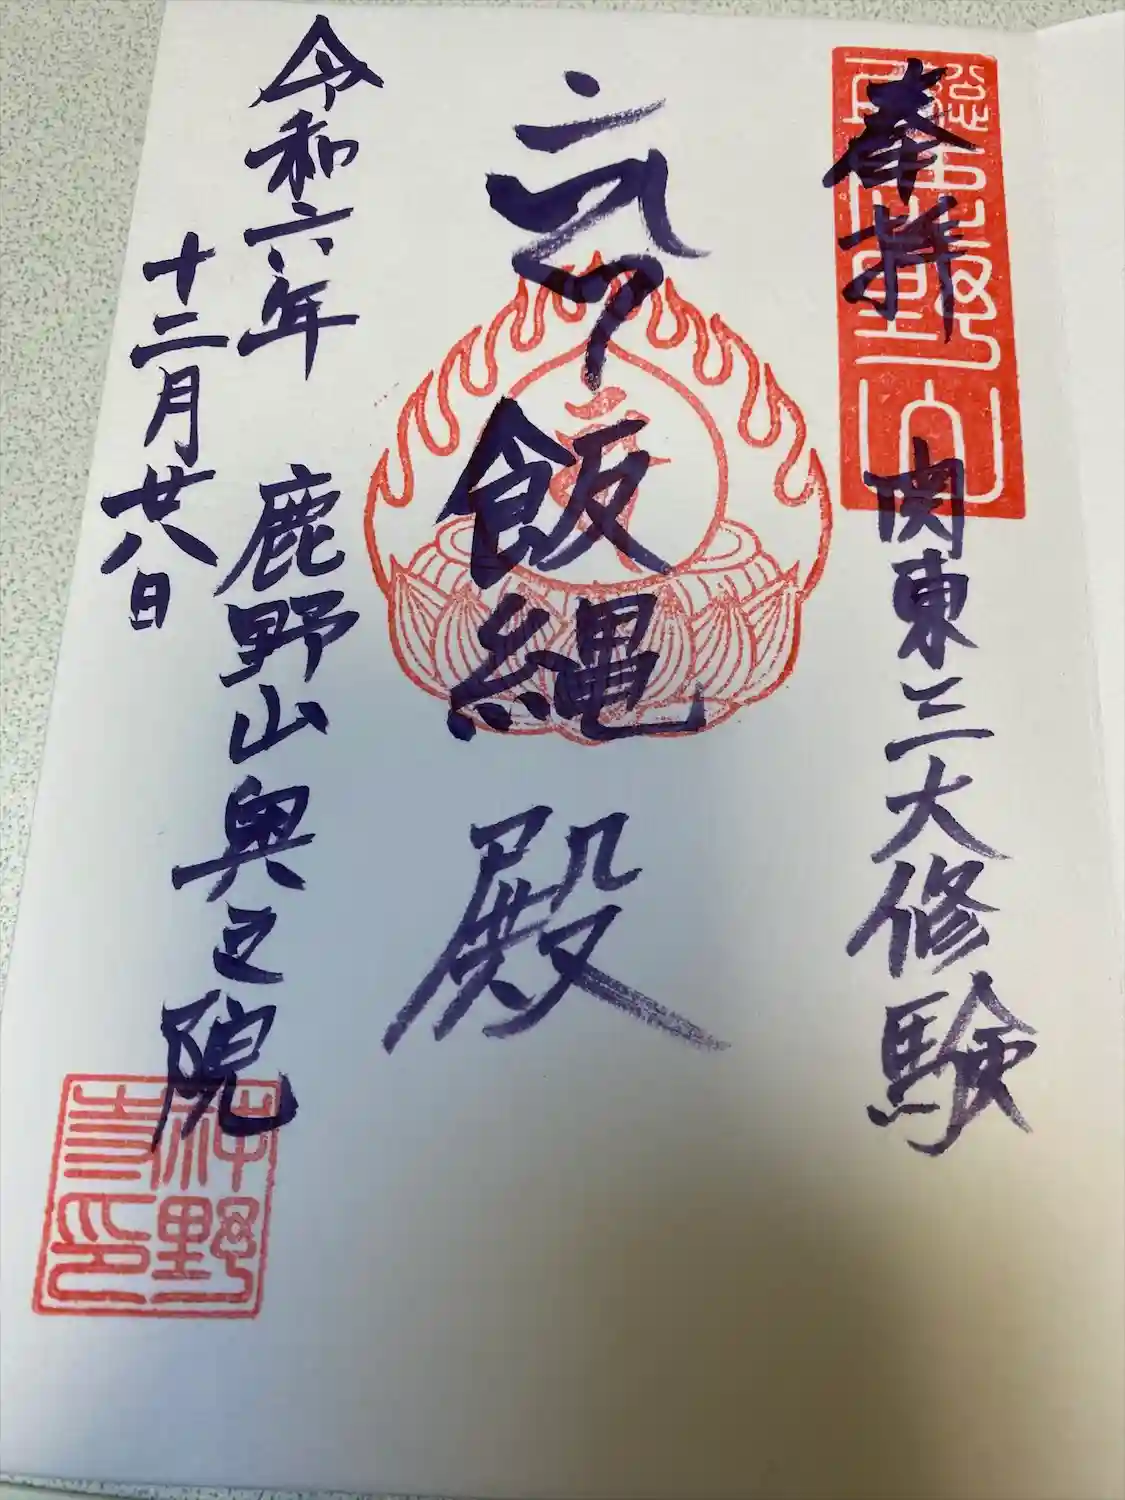 奉拝
関東三大修験
飯縄殿
令和六年
十二月廿八日
鹿野山奥之院
神野
寺印